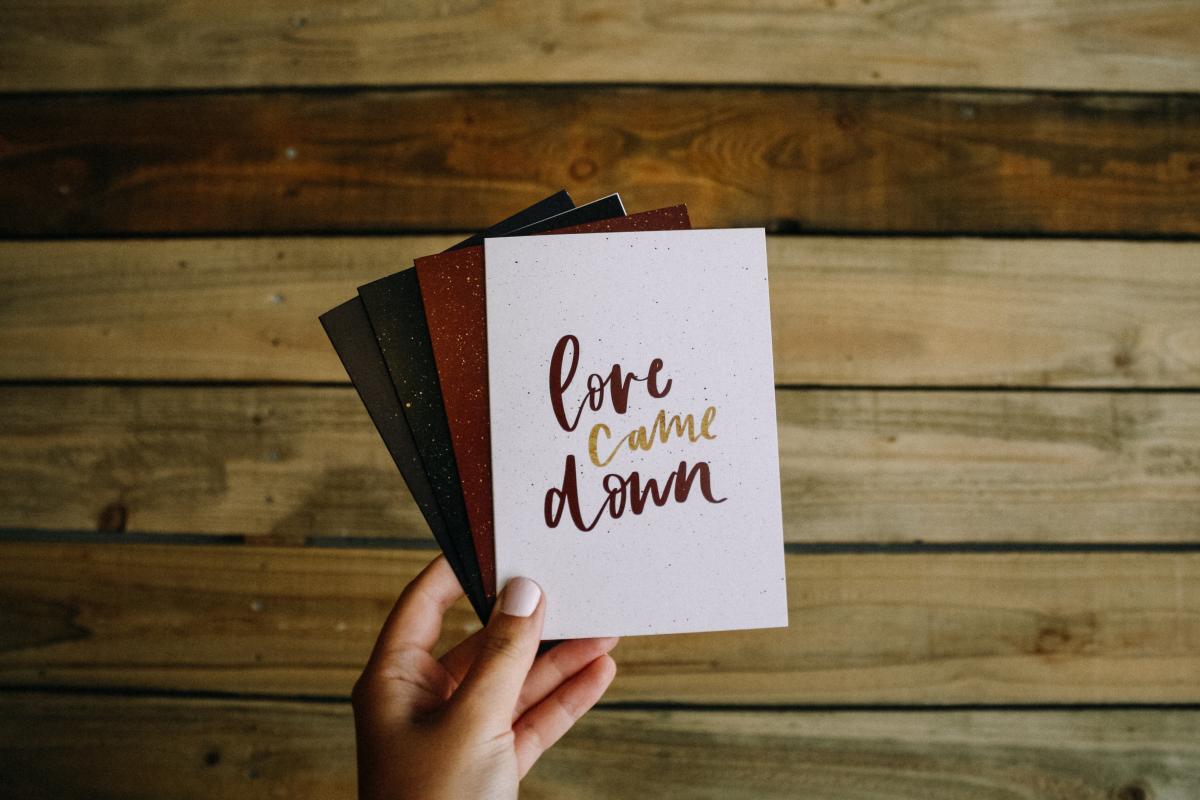 love
came
down